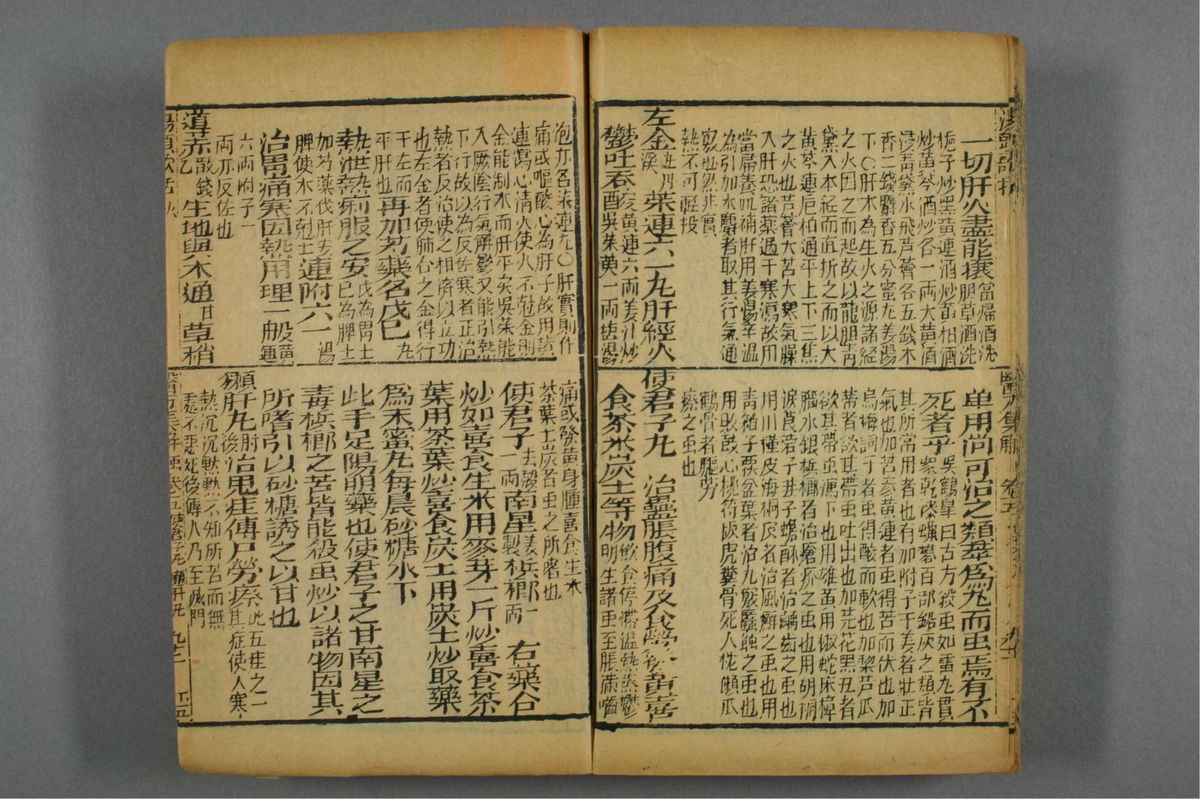 一切肝火盡能攘當歸酒洗胆草酒洗
梔子炒黑黃連酒炒黃栢酒
炒黃芩酒炒各一两大黃酒
浸青黛水飛芦薈各五錢木
香二錢麝香五分蜜丸姜湯
下○肝木為生火之源諸經
之火因之而起故以龍胆青
黛入本經而直折之而以大
黃芩連梔柏通平上下三焦
之火也芦薈大苦大寒氣臊
入肝恐諸藥過于寒瀉故用
當歸養血補肝用姜湯辛温
為引加木麝者取其行氣通
竅也然非實
熱不可輕投
左金 茱連六一丸肝經火
鬱吐吞酸黃連六两姜汁炒
吳茱萸一两塩湯
单用尚可治之類羣為丸而虫焉有不
死者乎吳鶴皋曰古方殺虫如雷丸貫
眾乾漆蠟塵百部鉛灰之類皆
其所常用者也有加附子干姜者壯正
氣也加苦參黃連者虫得苦而伏也加
烏梅訶子者虫得酸而軟也加藜芦瓜
蒂者欲其帶虫吐出也加芫花黑丑者
欲其帶虫瀉下也用雄黃川椒蛇床樟
腦水銀檳榔者治瘡疥之虫也用胡桐
淚莨若子韭子蟾酥者治䘌齒之虫也
用川槿皮海桐皮者治風癬之虫也用
青葙子覆盆葉者治九竅䘌蝕之虫也
用敗鼓心桃符板虎糞骨死人枕獺爪
鶴骨者驅勞
瘵之虫也
使君子丸 治蠱脹腹痛及食勞發黃喜
食茶米炭土等物飲食停滯濕熱蒸鬱
明生諸虫至脹滿嚙
泡亦名茱連丸○肝實則作
痛或嘔酸心為肝子故用黃
連瀉心清火使火不尅金則
金能制木而肝平矣吳茱能
入厥陰行氣解鬱又能引熱
下行故以為反佐寒者正治
熱者反治使之相濟以立功
也左金者使肺右之金得行
于左而
平肝也再加芍藥名戊己丸
熱泄熱痢服之安戊為胃土
己為脾土
加芍藥伐肝安
脾使木不尅土連附六一湯
治胃痛寒因熱用理一般黃連
六两附子一
两亦反佐也
導赤散 生地與木通甘草梢
痛或發黃身腫喜食生米
茶葉土炭者虫之所嗜也
使君子去殼二两南星姜製檳榔一两 右藥合
炒如喜食生米用麥芽一斤炒喜食茶
葉用茶葉炒喜食炭土用炭土炒取藥
為末蜜丸每晨砂糖水下
此手足陽明藥也使君子之甘南星之
毒檳榔之苦皆能殺虫炒以諸物因其
所嗜引以砂糖誘之以甘也
獺肝丸肘後治鬼疰傳尸勞瘵此五疰之一
其症使人寒
熱沉沉默默不知所苦而無
處不惡死後傳人乃至滅門